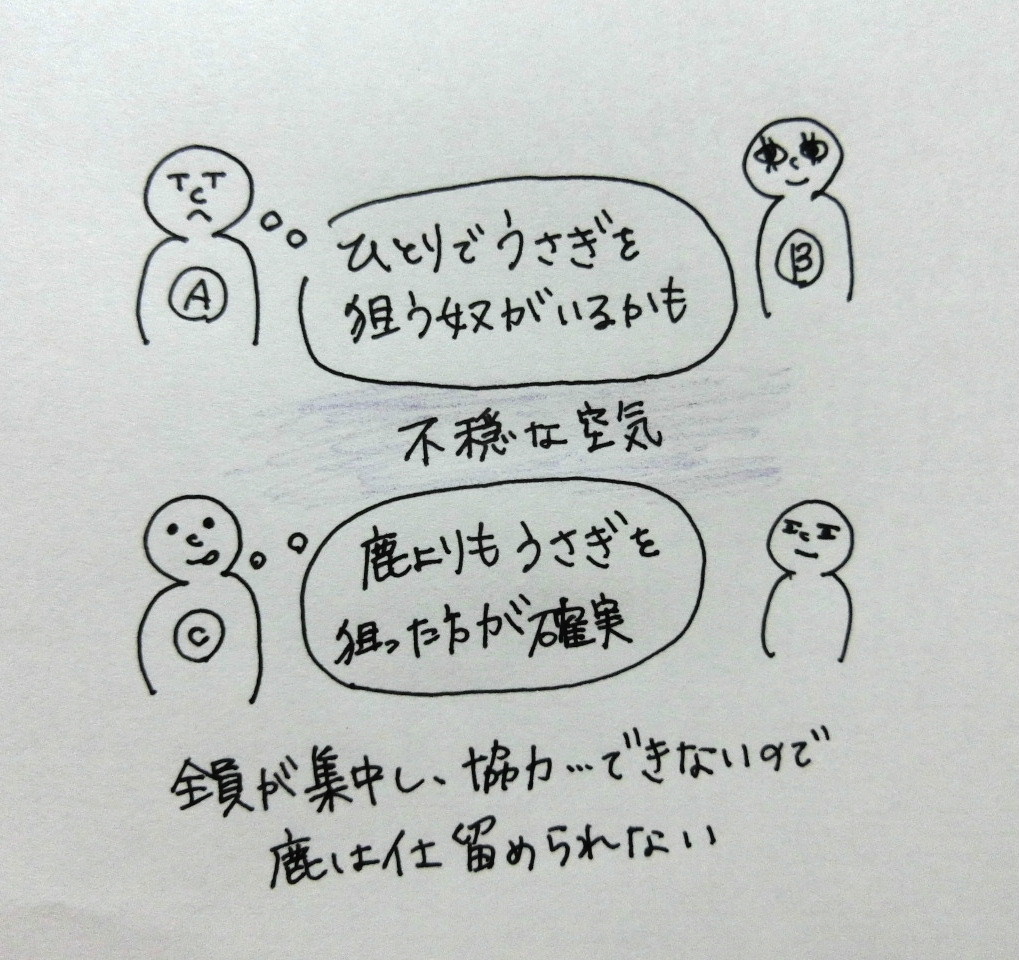 A
ひとりでうさぎを
狙う奴がいるかも
B
不穏な空気
C
鹿よりもうさぎを
狙った方が確実
全員が集中し、協力…できないので
鹿は仕留められない